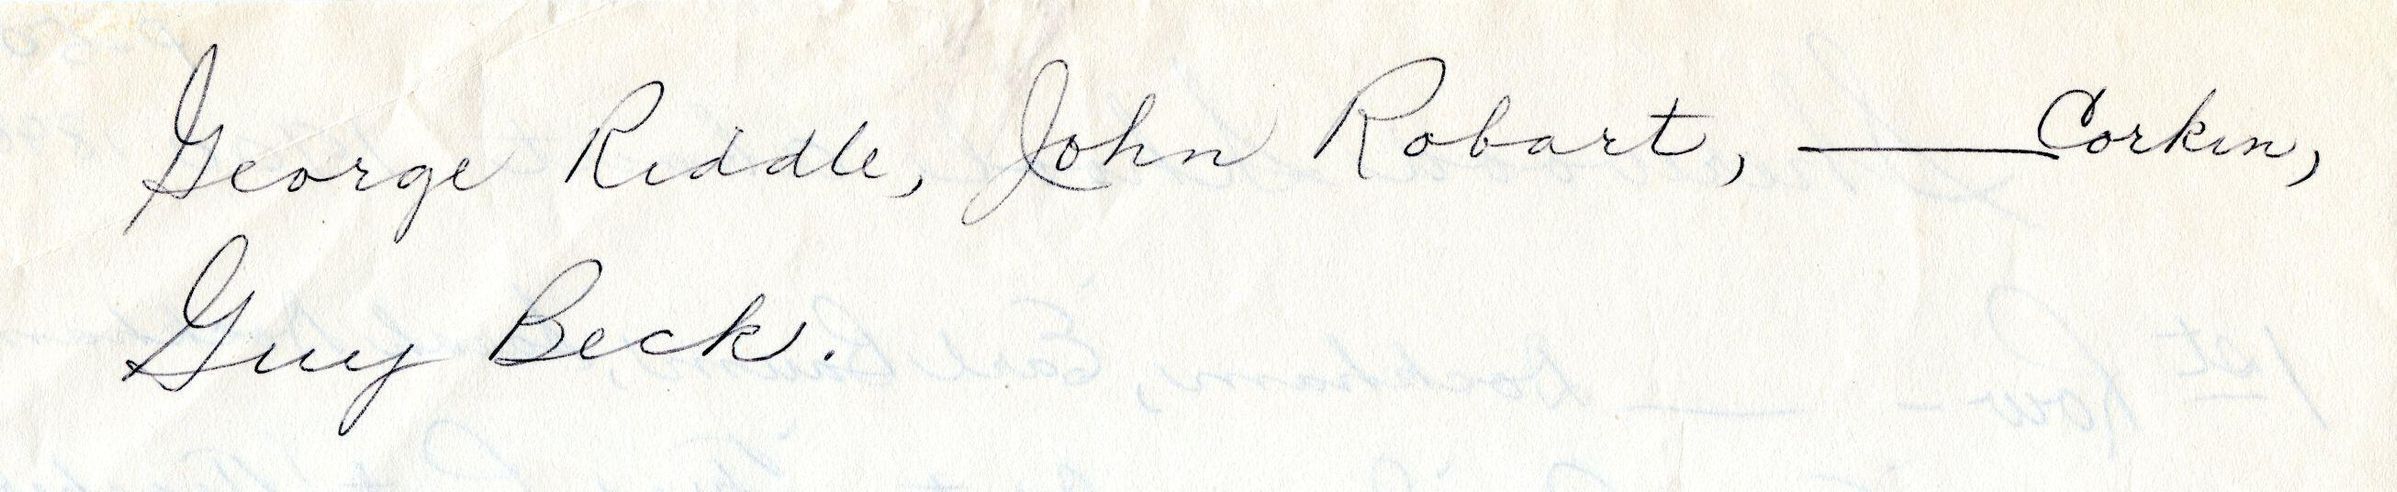 George Riddle, John Robart, ——— Corkin,
Guy Beck.